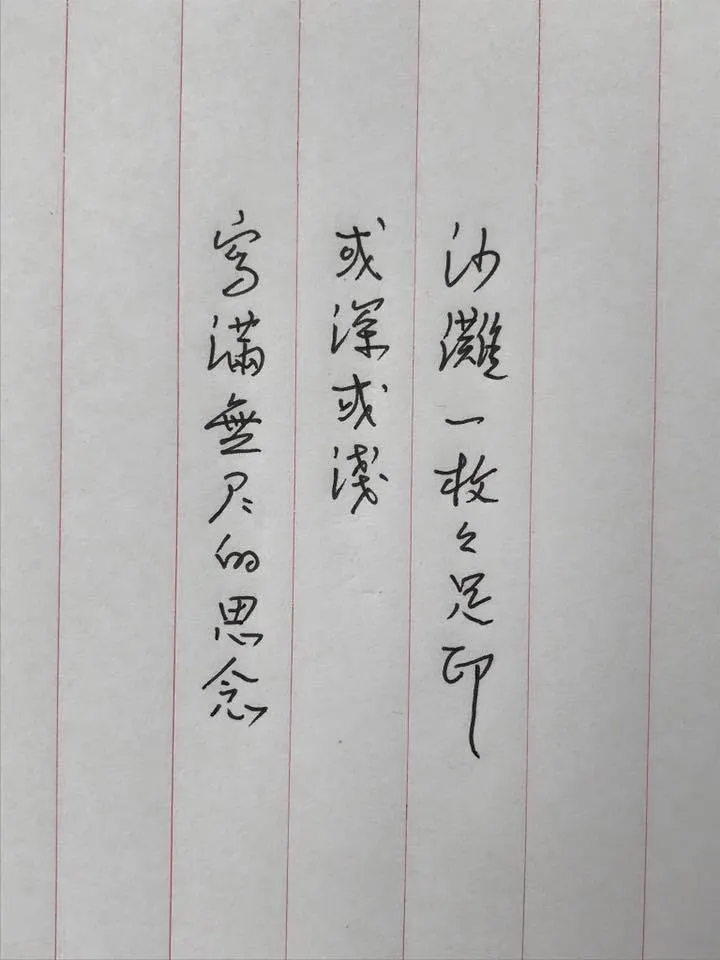 沙灘一枚々足印
或深或淺
寫滿無尽的思念